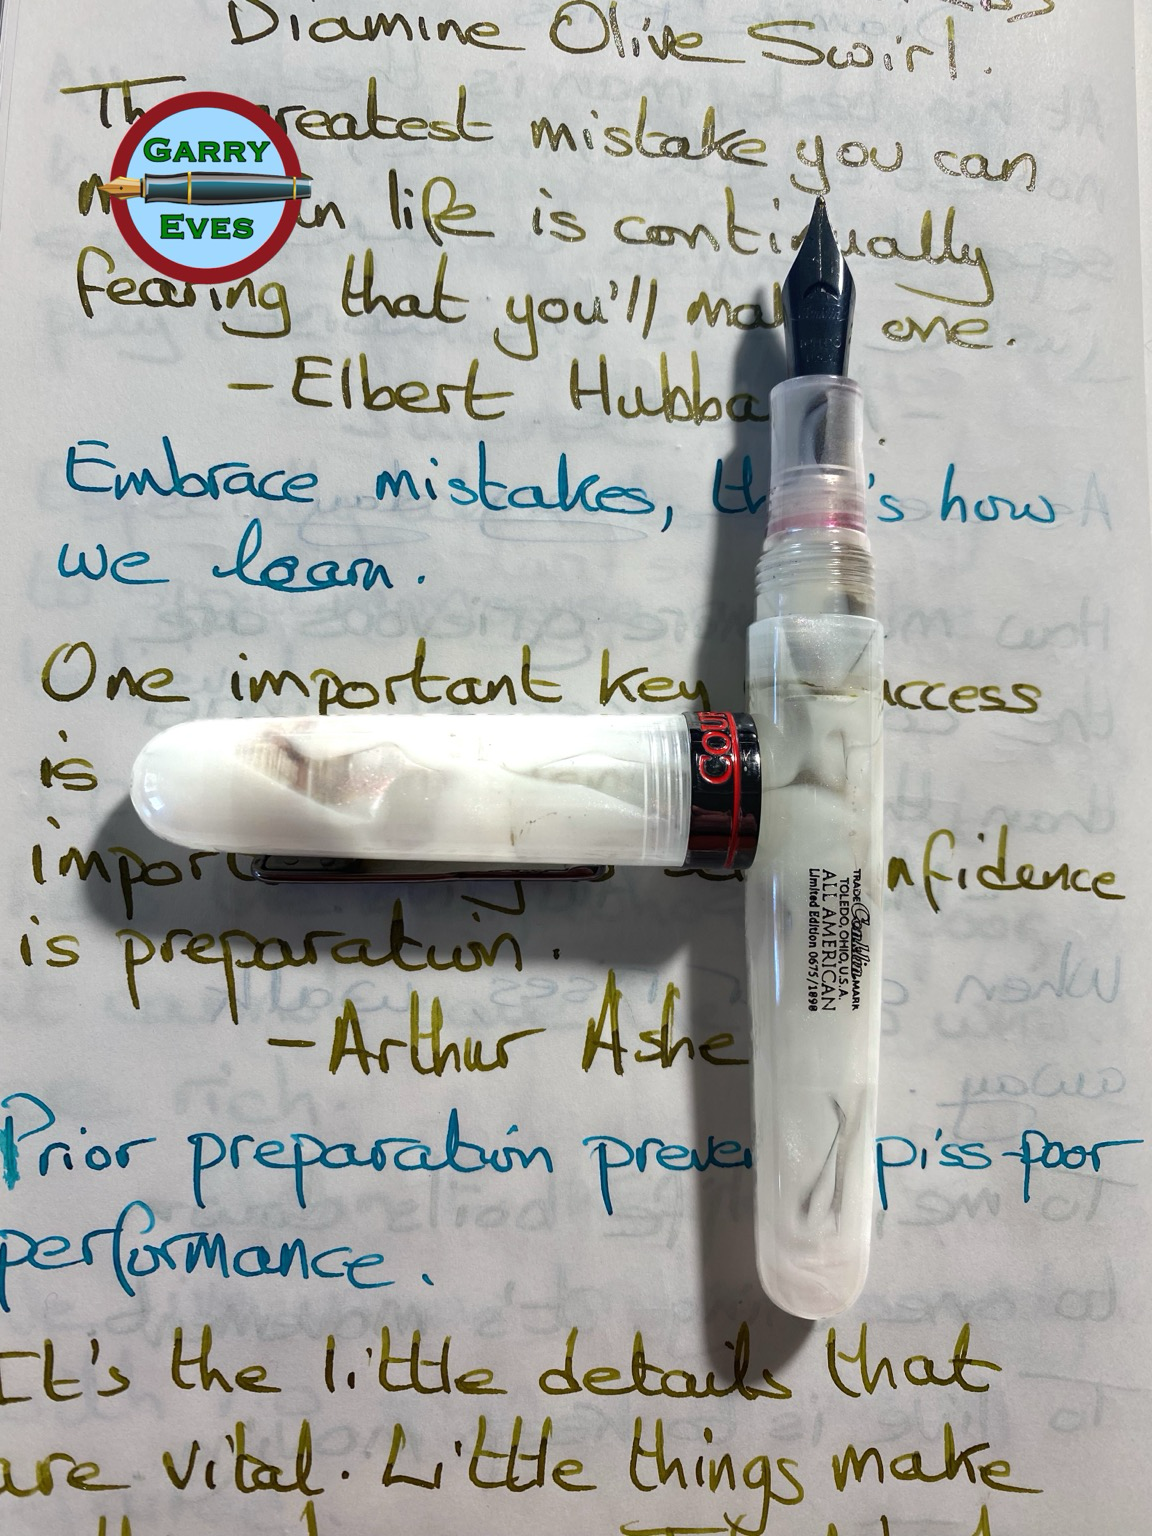 Diamine Olive Swirl.
GARRY
EVES
greatest mistake you can
in life is continually
fearing that you'll one.
-Elbert
Embrace mistakes, how
we learn.
One important key
is
is preparation.
-Arthur Ashe
Prior preparation piss-poor
performance.
It's the little details that
are vital. Little things make
TRADE Conklin MARK
TOLEDO, OHIO, U.S.A.
ALL AMERICAN
Limited Edition 0675/1898